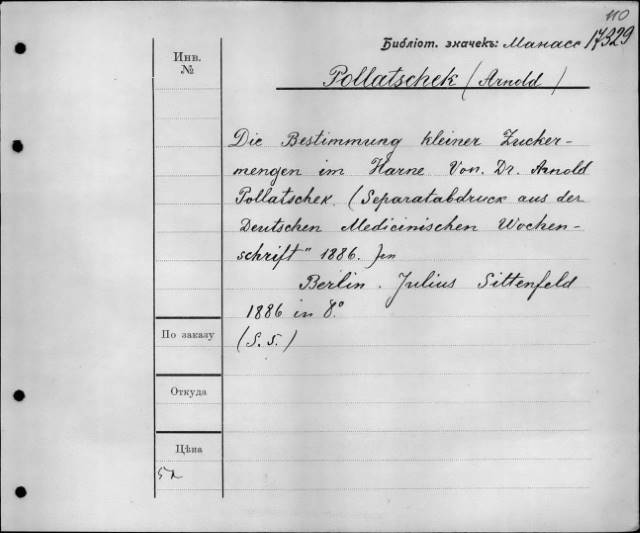 110
Библіот. значекъ: Манасс 17329
Инв.
№
Pollatschek (Arnold)
Die Bestimmung kleiner Zucker-
mengen im Harne Von. Dr. Arnold
Pollatschek. (Separatabdruck aus der
Deutschen Medicinischen Wochen-
schrift" 1886.)
Berlin. Julius Sittenfeld
1886 in 8.°
По заказу
(S. S.)
Откуда
Цѣна